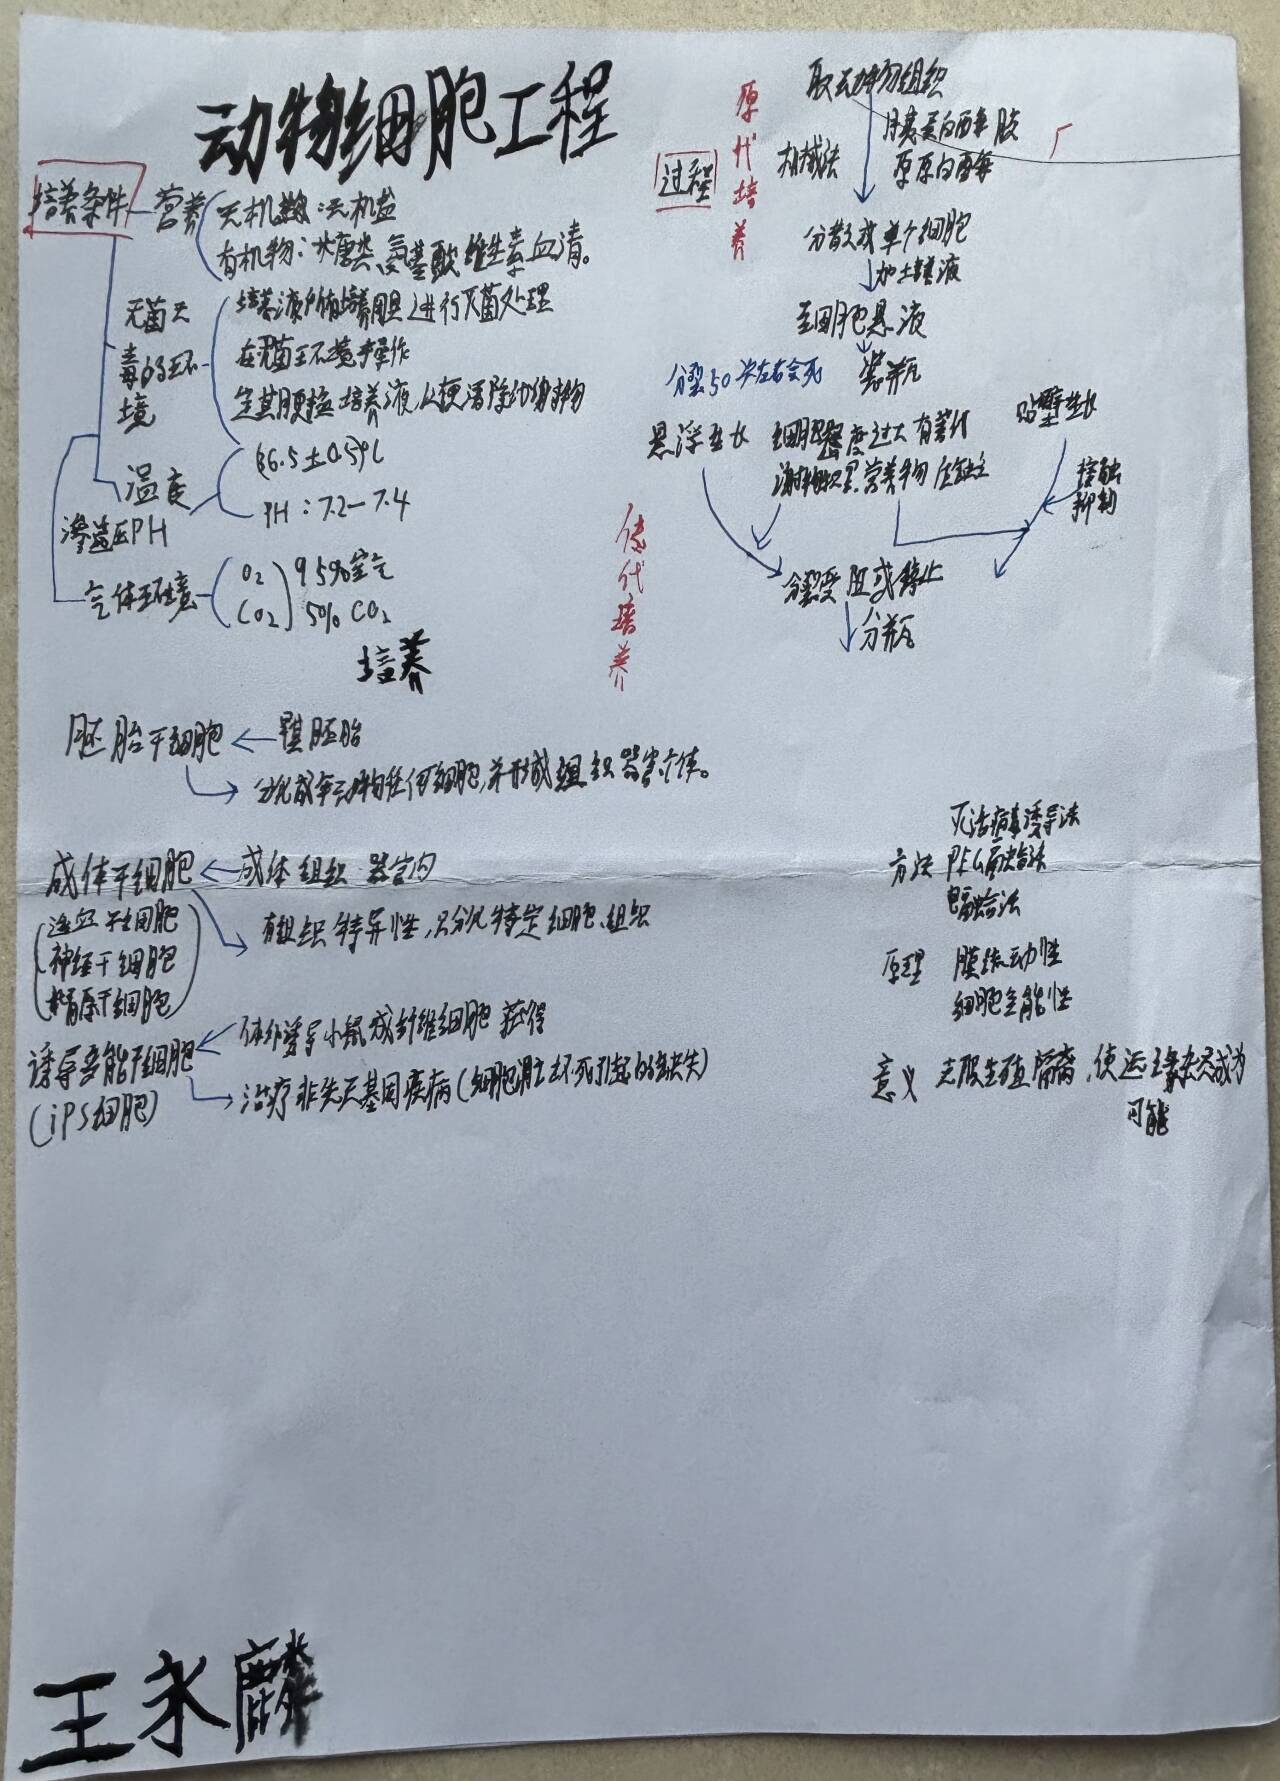 动物细胞工程
培养条件
营养
无机物:无机盐
有机物:糖类、氨基酸 维生素 血清。
无菌无毒的环境
培养液所有培养用具进行灭菌处理
在无菌环境下操作
定期更换培养液,以便清除代谢物
温度
36.5±0.5℃
渗透压PH
PH:7.2-7.4
气体环境
O2 95%空气
CO2 5% CO2
过程
原代培养
取动物组织
机械法
胰蛋白酶 胶
原蛋白酶
分散成单个细胞
加培养液
细胞悬液
装瓶
分裂50次左右会死
悬浮生长
细胞密度过大 有害代
谢物积累 营养物
贴壁生长
接触
抑制
传代培养
分裂受阻或停止
分瓶
培养
胚胎干细胞
早期胚胎
分化成动物任何细胞,并形成组织器官个体。
成体干细胞
成体组织 器官内
造血干细胞
神经干细胞
精原干细胞
有组织特异性,只分化特定细胞、组织
诱导多能干细胞
(iPS细胞)
体外诱导小鼠成纤维细胞 获得
治疗非先天基因疾病(细胞凋亡坏死引起的缺失)
方法
灭活病毒诱导法
PEG融合法
电融合法
原理
膜流动性
细胞全能性
意义
克服生殖隔离,使远缘杂交成为
可能
王永麟